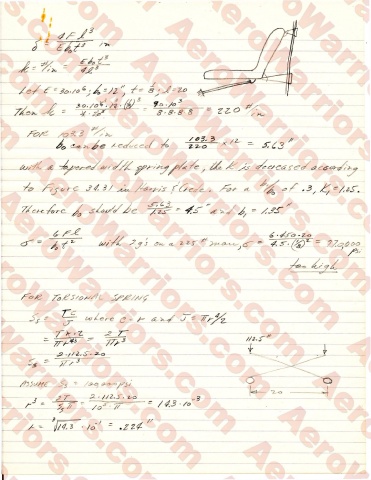 δ = 4Fl³ / Eb₀t³ in
k = #/in = Eb₀t³ / 4l³
Let E = 30·10⁶, b₀ = 12", t = 1/8, l = 20
Then k = 30·10⁶·12·(1/8)³ / 4·20³ = 90·10³ / 8·8·8·8 = 220 #/in
FOR 103.3 #/in
b₀ can be reduced to 103.3/220 × 12 = 5.63"
with a tapered width spring plate, the K is decreased according
to Figure 34.31 in Harris & Crede. For a b₁/b₀ of .3, K₁ = 1.25.
Therefore b₀ should be 5.63/1.25 = 4.5" and b₁ = 1.35"
σ = 6Fl / b₀t² with 2g's on a 225 # man, σ = 6·450·20 / 4.5·(1/8)² = 770,000 psi
too high
FOR TORSIONAL SPRING
Ss = Tc/J where c = r and J = πr⁴/2
= Tr·2 / πr⁴ = 2T / πr³
112.5"
Ss = 2·112.5·20 / πr³
ASSUME Ss = 100,000 psi
20
r³ = 2T / Ssπ = 2·112.5·20 / 10⁵·π = 14.3·10⁻³
r = ³√14.3 · 10⁻¹ = .224"
AeroWarriors.com